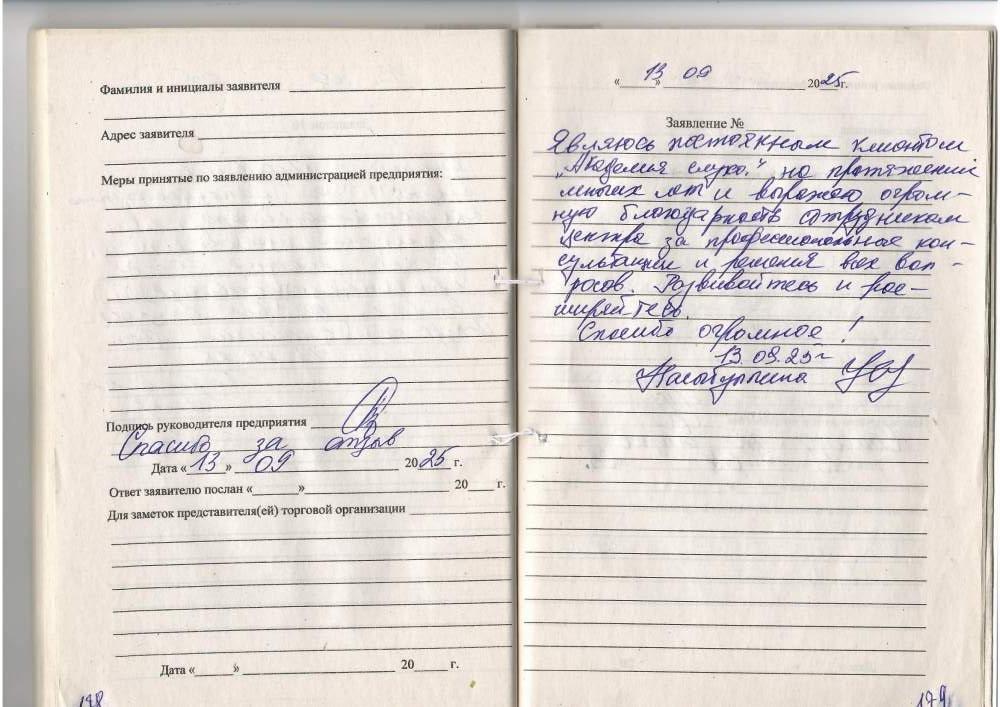 Фамилия и инициалы заявителя
Адрес заявителя
Меры принятые по заявлению администрацией предприятия:
Подпись руководителя предприятия
Спасибо за отзыв
Дата «13» 09 2025 г.
Ответ заявителю послан « » 20 г.
Для заметок представителя(ей) торговой организации
Дата « » 20 г.
178
«13» 09 2025г.
Заявление №
Являюсь постоянным клиентом
"Академия слуха" на протяжении
многих лет и выражаю огром-
ную благодарность сотрудникам
центра за профессиональные кон-
сультации и решения всех воп-
росов. Развивайтесь и рас-
ширяйтесь.
Спасибо огромное!
13.09.25г
179